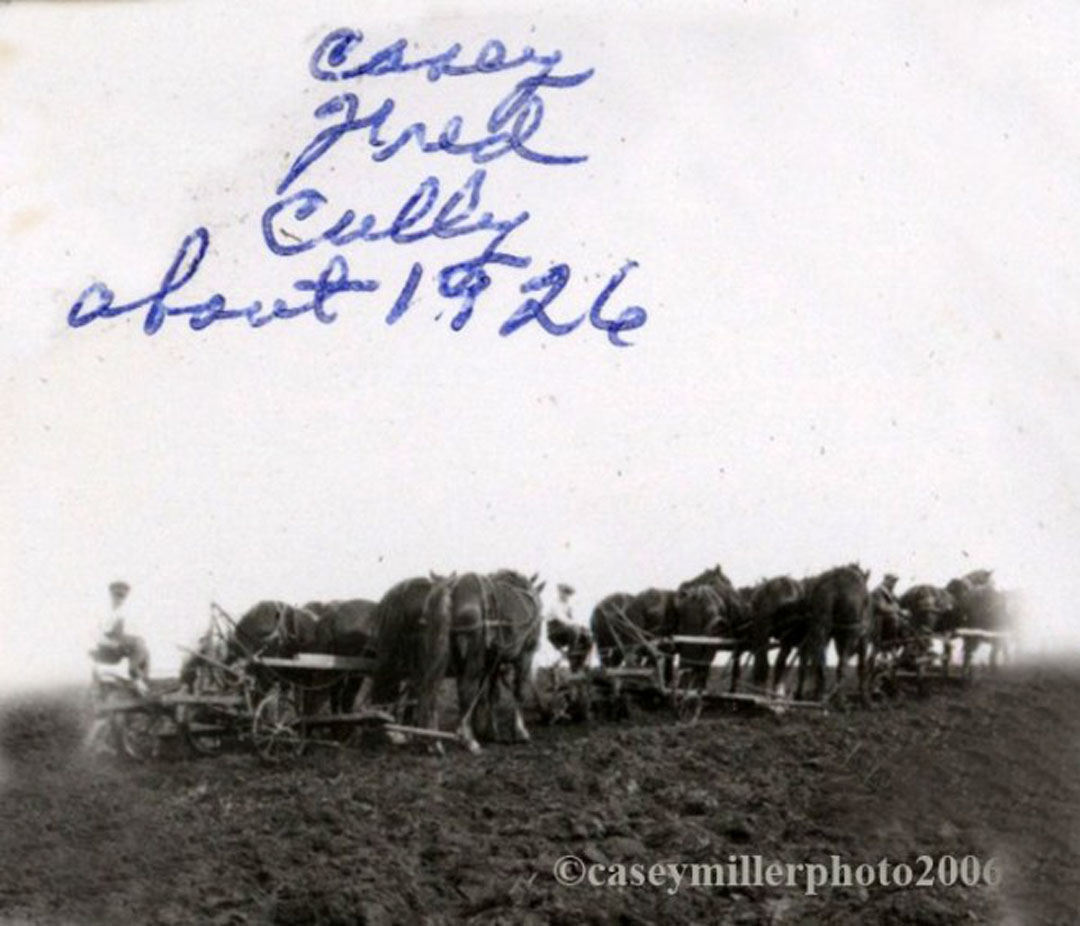 Casey
Fred
Cully
about 1926
©caseymillerphoto2006